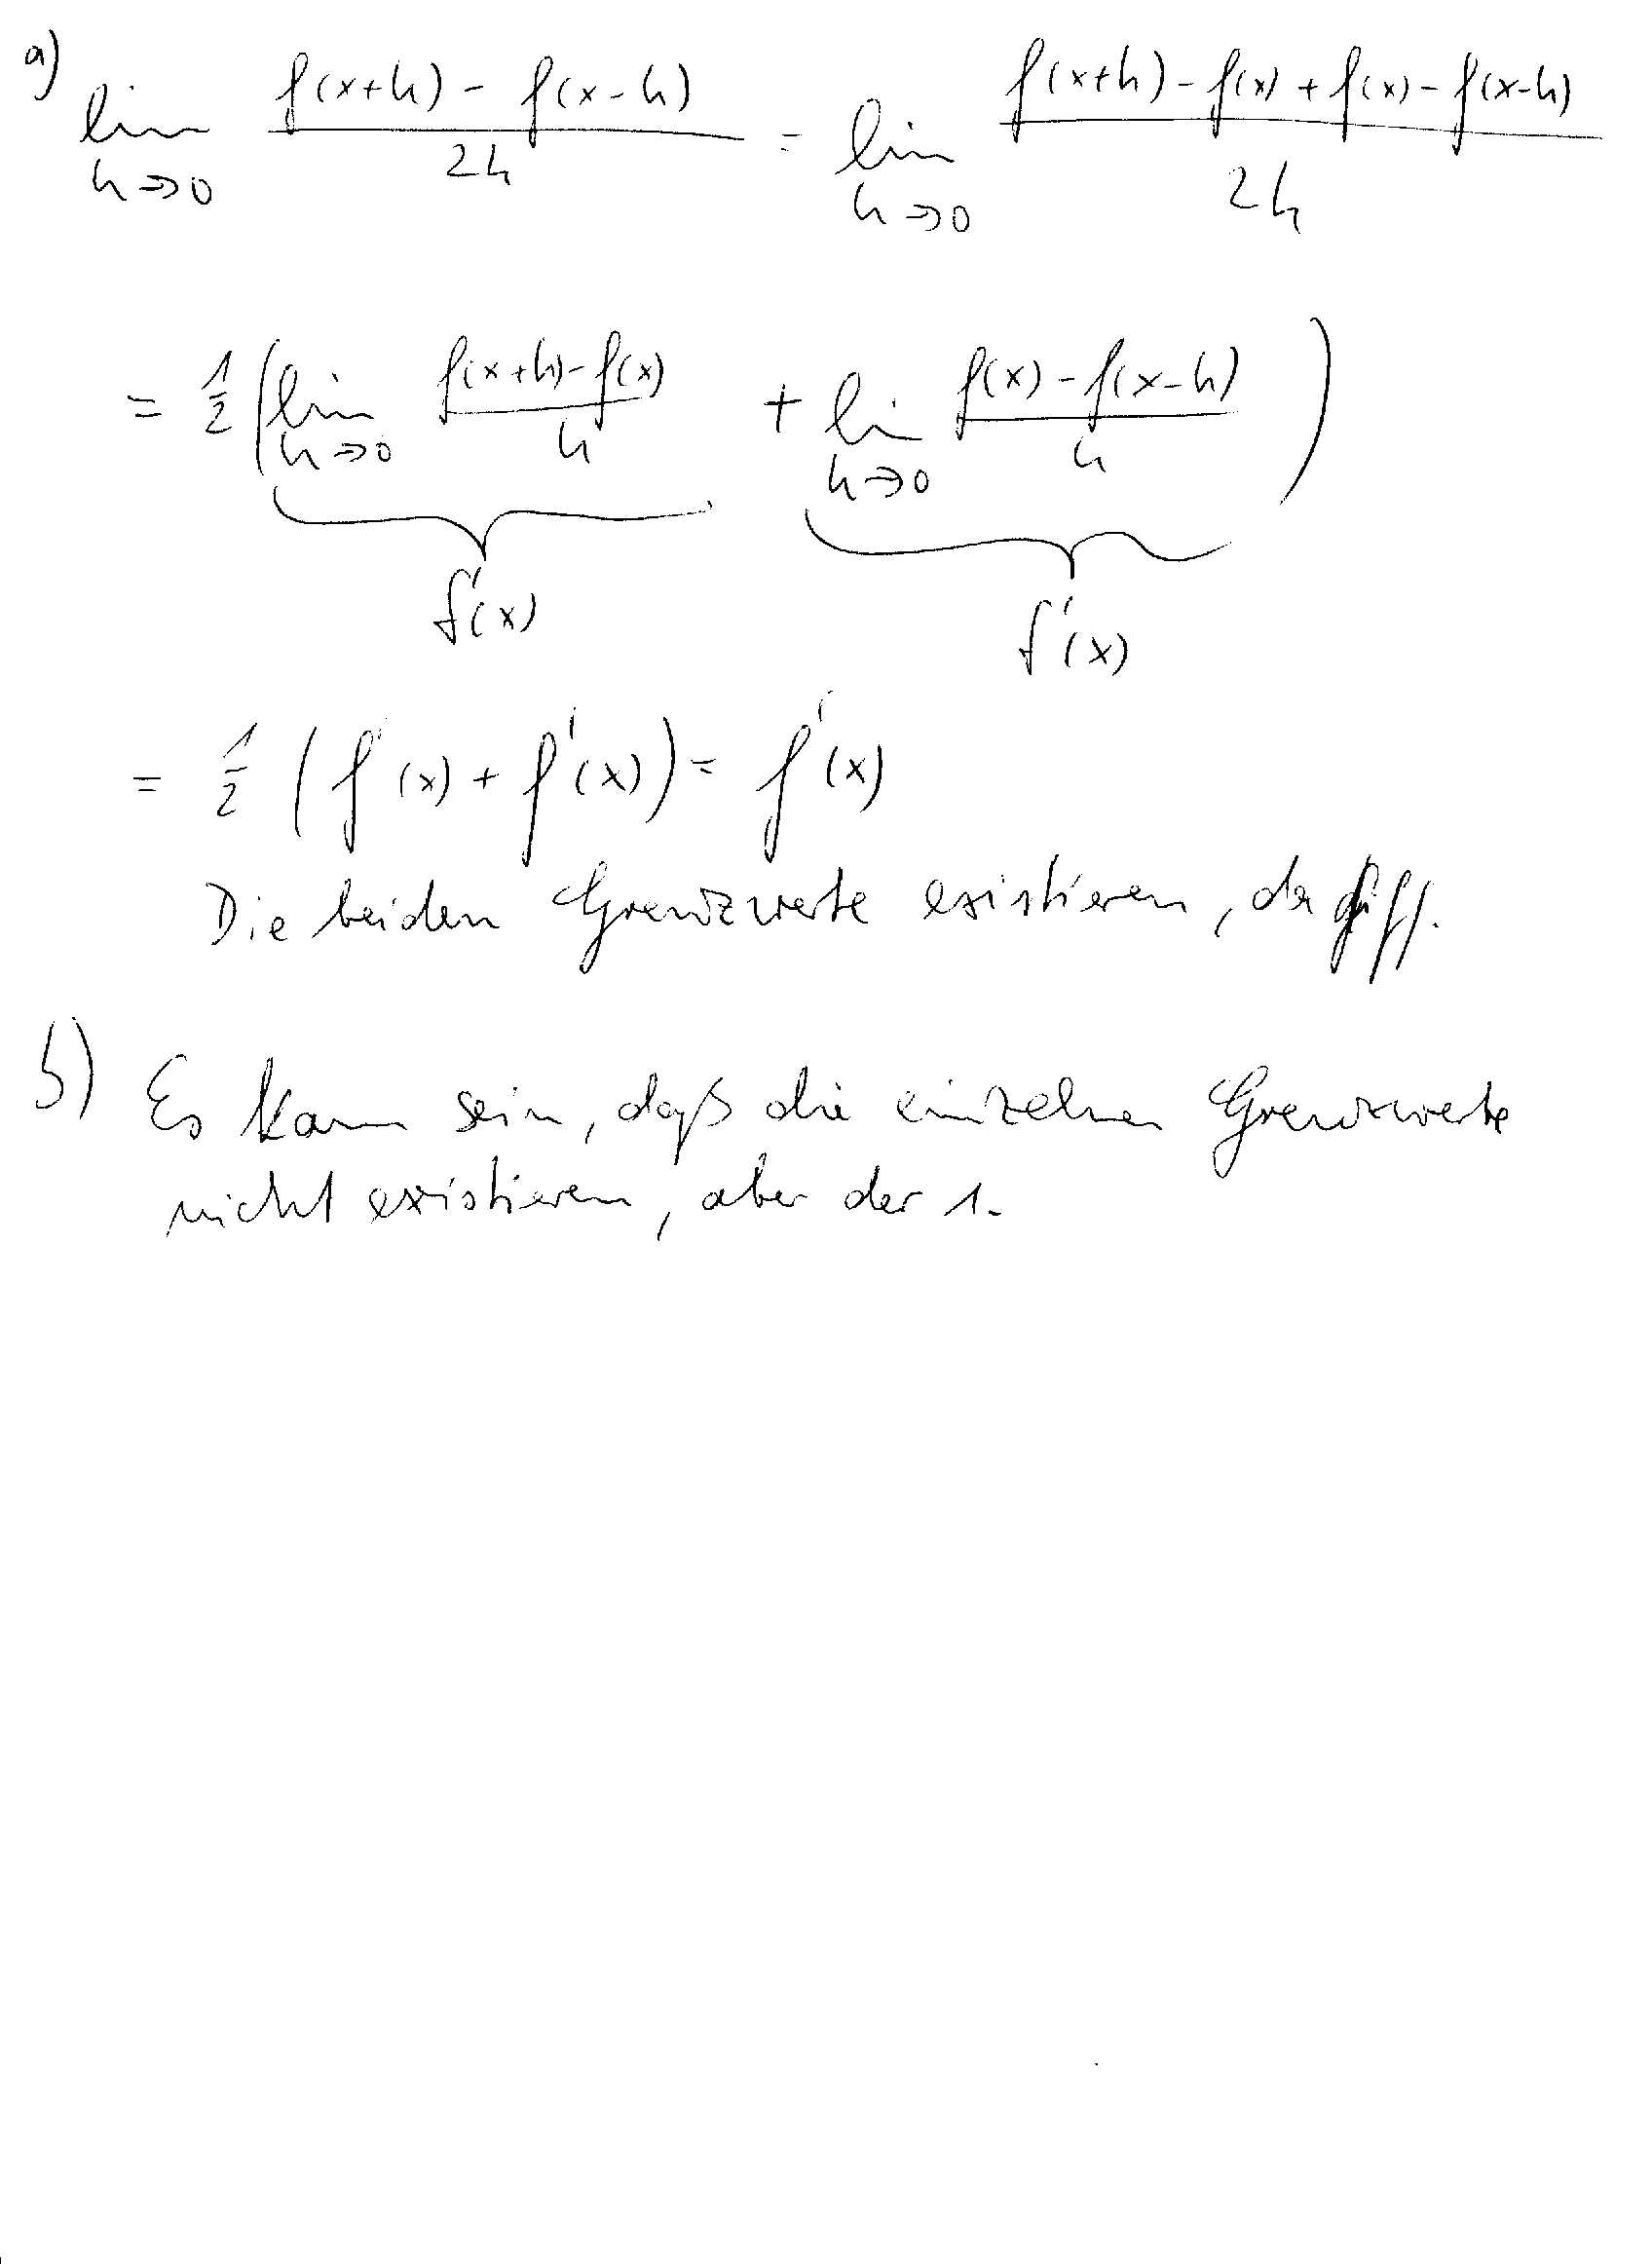 a) lim h→0 (f(x+h) - f(x-h)) / 2h = lim h→0 (f(x+h) - f(x) + f(x) - f(x-h)) / 2h
= 1/2 ( lim h→0 (f(x+h) - f(x)) / h + lim h→0 (f(x) - f(x-h)) / h )
f'(x) f'(x)
= 1/2 ( f'(x) + f'(x) ) = f'(x)
Die beiden Grenzwerte existieren, da diff.
b) Es kann sein, daß die einzelnen Grenzwerte
nicht existieren, aber der 1.